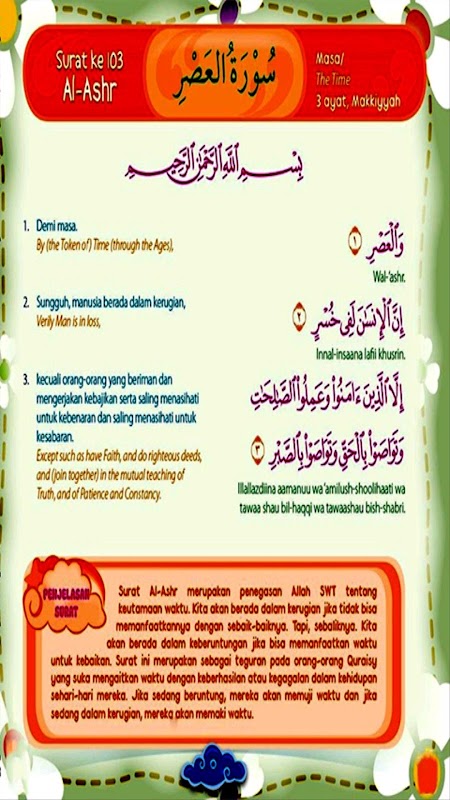 Surat ke 103
Al-Ashr
سُوْرَةُ الْعَصْرِ
Masa/
The Time
3 ayat, Makkiyyah
بِسْمِ اللّٰهِ الرَّحْمٰنِ الرَّحِيْمِ
1. Demi masa.
By (the Token of) Time (through the Ages),
وَٱلْعَصْرِ ۝١
Wal-'ashr.
2. Sungguh, manusia berada dalam kerugian,
Verily Man is in loss,
إِنَّ ٱلْإِنسَٰنَ لَفِى خُسْرٍ ۝٢
Innal-insaana lafii khusrin.
3. kecuali orang-orang yang beriman dan
mengerjakan kebajikan serta saling menasihati
untuk kebenaran dan saling menasihati untuk
kesabaran.
Except such as have Faith, and do righteous deeds,
and (join together) in the mutual teaching of
Truth, and of Patience and Constancy.
إِلَّا ٱلَّذِينَ ءَامَنُوا۟ وَعَمِلُوا۟ ٱلصَّٰلِحَٰتِ
وَتَوَاصَوْا۟ بِٱلْحَقِّ وَتَوَاصَوْا۟ بِٱلصَّبْرِ ۝٣
Illallazdiina aamanuu wa 'amilush-shoolihaati wa
tawaa shau bil-haqqi wa tawaashau bish-shabri.
PENJELASAN
SURAT
Surat Al-Ashr merupakan penegasan Allah SWT tentang
keutamaan waktu. Kita akan berada dalam kerugian jika tidak bisa
memanfaatkannya dengan sebaik-baiknya. Tapi, sebaliknya. Kita
akan berada dalam keberuntungan jika bisa memanfaatkan waktu
untuk kebaikan. Surat ini merupakan sebagai teguran pada orang-orang Quraisy
yang suka mengaitkan waktu dengan keberhasilan atau kegagalan dalam kehidupan
sehari-hari mereka. Jika sedang beruntung, mereka akan memuji waktu dan jika
sedang dalam kerugian, mereka akan memaki waktu.